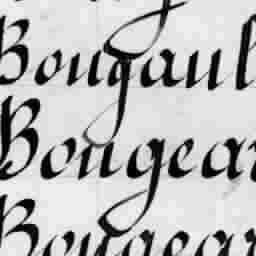 Bougaul
Bougear
Bougear